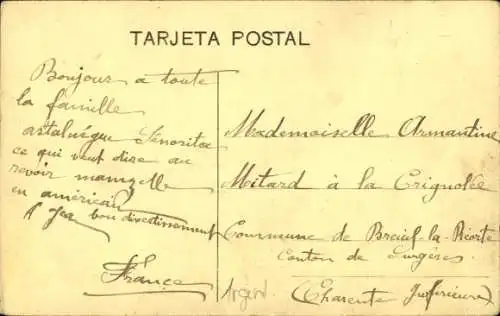 TARJETA POSTAL
Bonjour a toute
la famille
astaluégue Señorita
ce qui veut dire au
revoir mamzelle
en américain
bon divertissement
France
Mademoiselle Armantine
Moitard à la Crignolée
Commune de Breuil-la-Réorte
Canton de Surgères
(Charente Inférieure)
Argent.